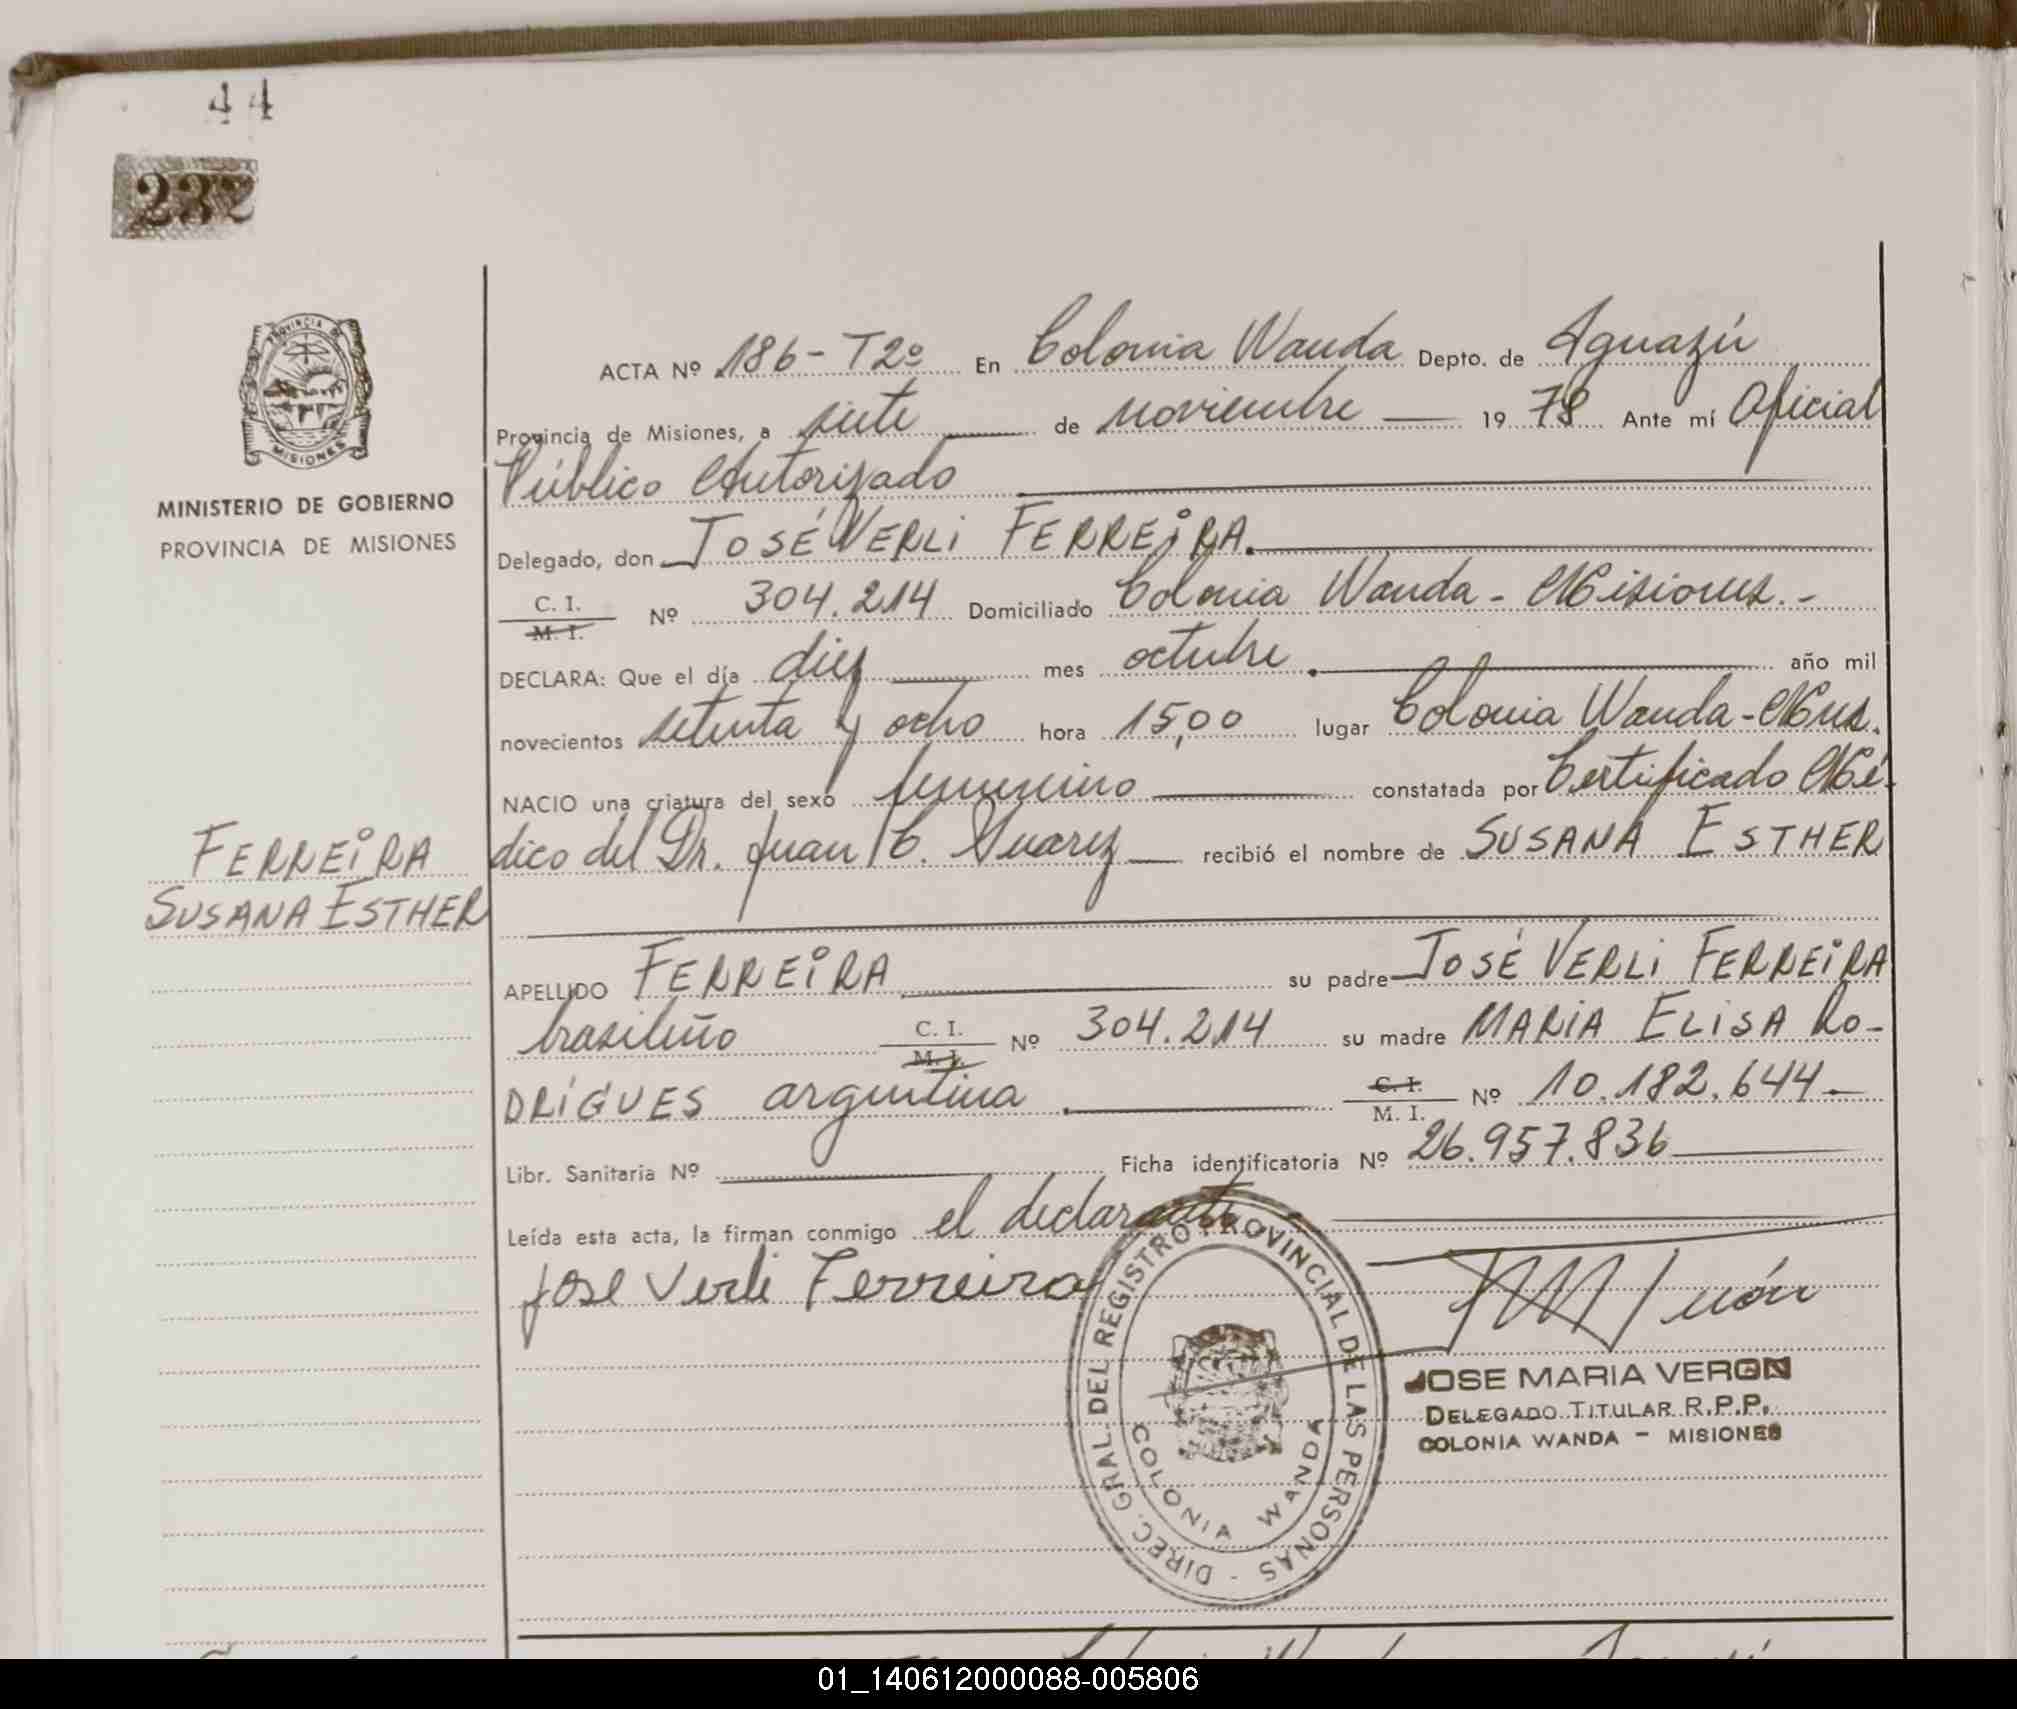 44
232
PROVINCIA DE
MISIONES
MINISTERIO DE GOBIERNO
PROVINCIA DE MISIONES
FERREIRA
SUSANA ESTHER
ACTA Nº 186-T2º En Colonia Wanda Depto. de Iguazú
Provincia de Misiones, a siete de noviembre 1978 Ante mí Oficial
Público Autorizado
Delegado, don JOSÉ VERLI FERREIRA.
C. I.
M. I.
Nº 304.214 Domiciliado Colonia Wanda - Misiones.-
DECLARA: Que el día diez mes octubre. año mil
novecientos setenta y ocho hora 15,00 lugar Colonia Wanda-Mnes.
NACIO una criatura del sexo femenino constatada por Certificado Mé-
dico del Dr. Juan C. Suarez recibió el nombre de SUSANA ESTHER
APELLIDO FERREIRA su padre JOSÉ VERLI FERREIRA
brasileño C. I. Nº 304.214 su madre MARIA ELISA RO-
M. I.
DRÍGUES argentina. C. I. Nº 10.182.644.-
M. I.
Libr. Sanitaria Nº Ficha identificatoria Nº 26.957.836
Leída esta acta, la firman conmigo el declarante.
Jose Verli Ferreira
DIREC. GRAL. DEL REGISTRO PROVINCIAL DE LAS PERSONAS -
COLONIA WANDA
JOSE MARIA VERON
DELEGADO TITULAR R.P.P.
COLONIA WANDA - MISIONES
01_140612000088-005806